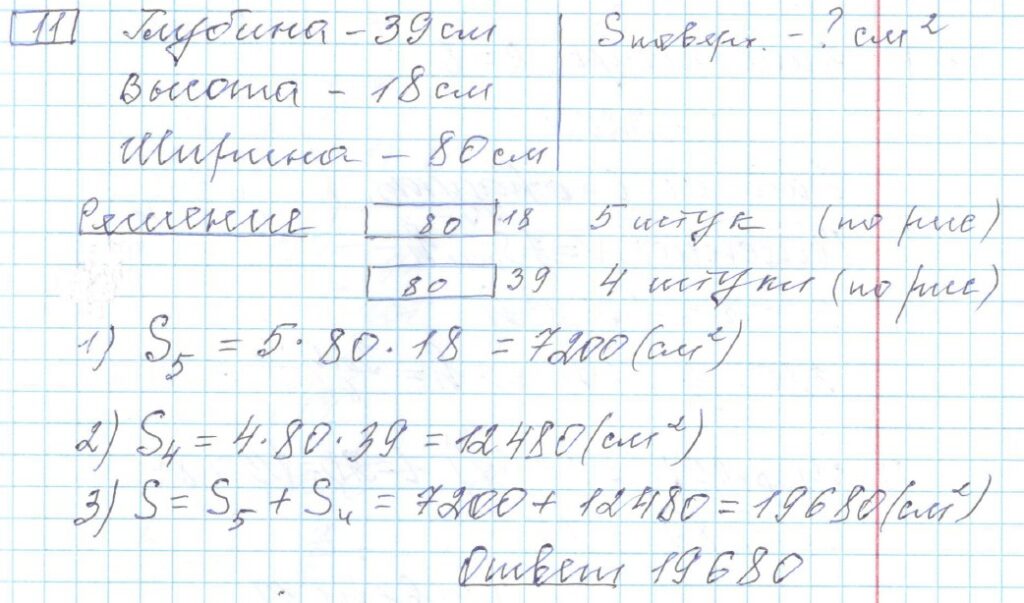 11 Глубина - 39 см Sповерх. - ? см²
Высота - 18 см
Ширина - 80 см
Решение 80 18 5 штук (по рис)
80 39 4 штуки (по рис)
1) S₅ = 5 · 80 · 18 = 7200 (см²)
2) S₄ = 4 · 80 · 39 = 12480 (см²)
3) S = S₅ + S₄ = 7200 + 12480 = 19680 (см²)
Ответ 19680